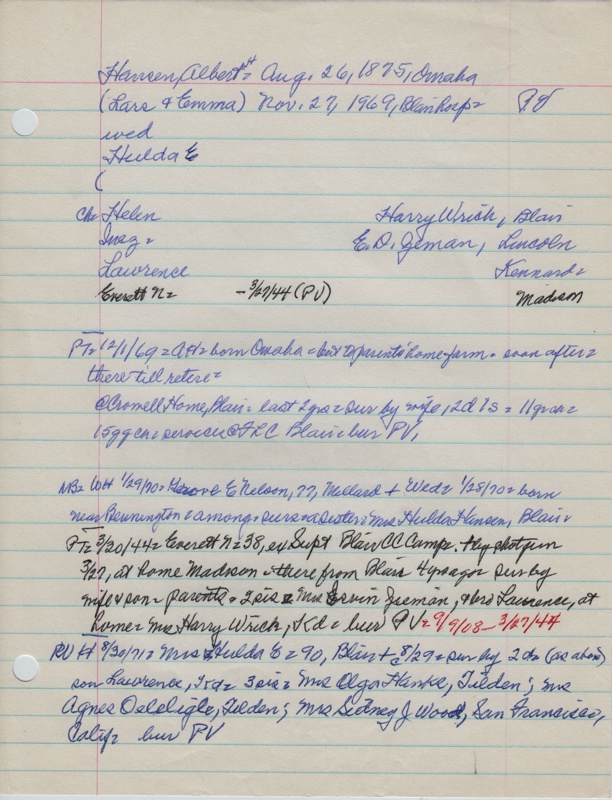 Hansen, Albert H= Aug. 26, 1875, Omaha
(Lars & Emma) Nov. 27, 1969, Blair Hosp= PV
wed
Hulda E
(
Ch: Helen Harry Wrich, Blair
Inez= E. D. Zeman, Lincoln
Lawrence Kennard=
Everett N= -3/27/44 (PV) Madison
PT= 12/1/69= AH= born Omaha= but to parents' home-farm= soon after=
there till retire=
@ Crowell Home, Blair= last 2 yrs= sur by wife, 2d 1s= 11 gran=
15 gg ch= services @ FLC Blair= bur PV,
1/29/70= E Nelson, 77, Millard + Wed= 1/28/70= born
near Bennington= among surs= a sister= Mrs Hulda Hansen, Blair=
PT= 3/20/44= Everett N= 38, ex Supt Blair CC Camp. + by shotgun
3/27, at home Madison= there from Blair 4 yrs ago= sur by
wife & son= parents= 2 sis= Mrs Ervin Zeman, & bro Lawrence, at
home= Mrs Harry Wrich, Kd= bur PV= 9/9/08 - 3/27/44
8/30/71= Mrs Hulda E= 90, Blair + 8/29= sur by 2d= (as above)
son Lawrence, Kd= 3 sis= Mrs Olga Hanke, Tilden; Mrs
Agnes Tilden; Mrs Sidney J Wood, San Francisco,
Calif= bur PV